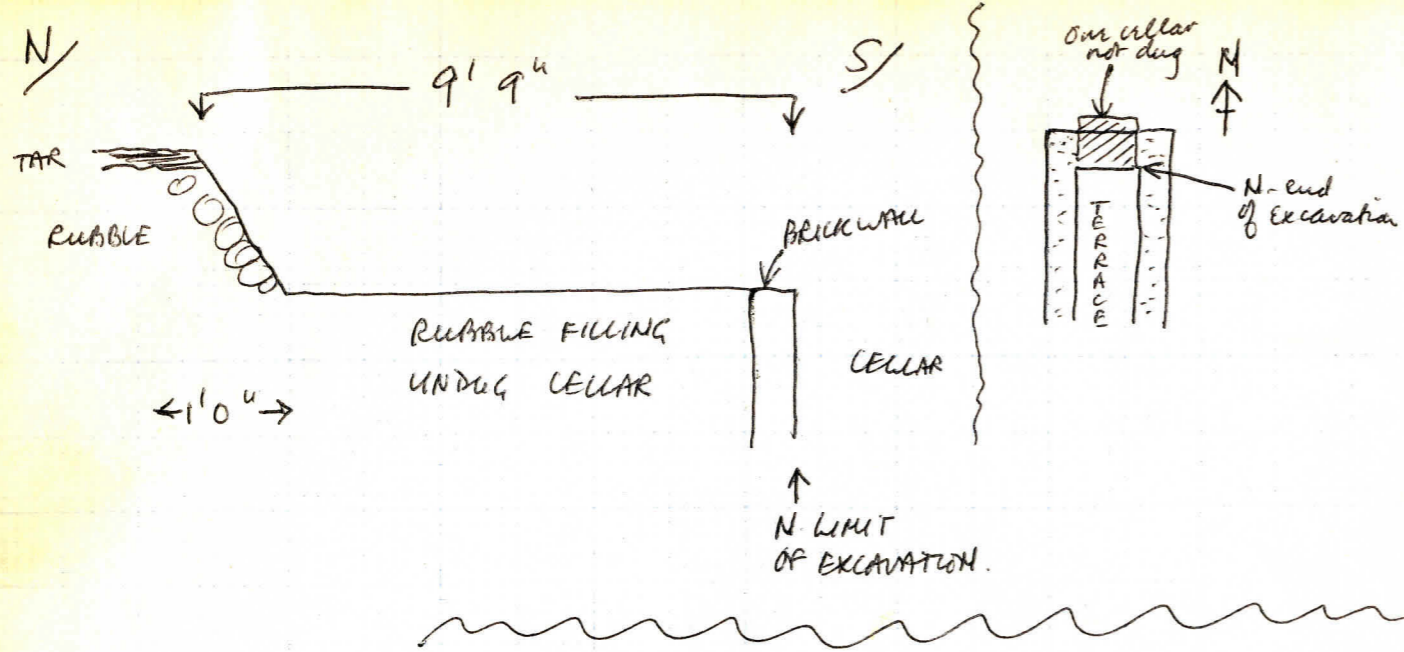 N/
9' 9"
S/
TAR
RUBBLE
BRICKWALL
RUBBLE FILLING
UNDUG CELLAR
CELLAR
1'0"
N. LIMIT
OF EXCAVATION.
one cellar
not dug
N
N-end
of Excavation
TERRACE